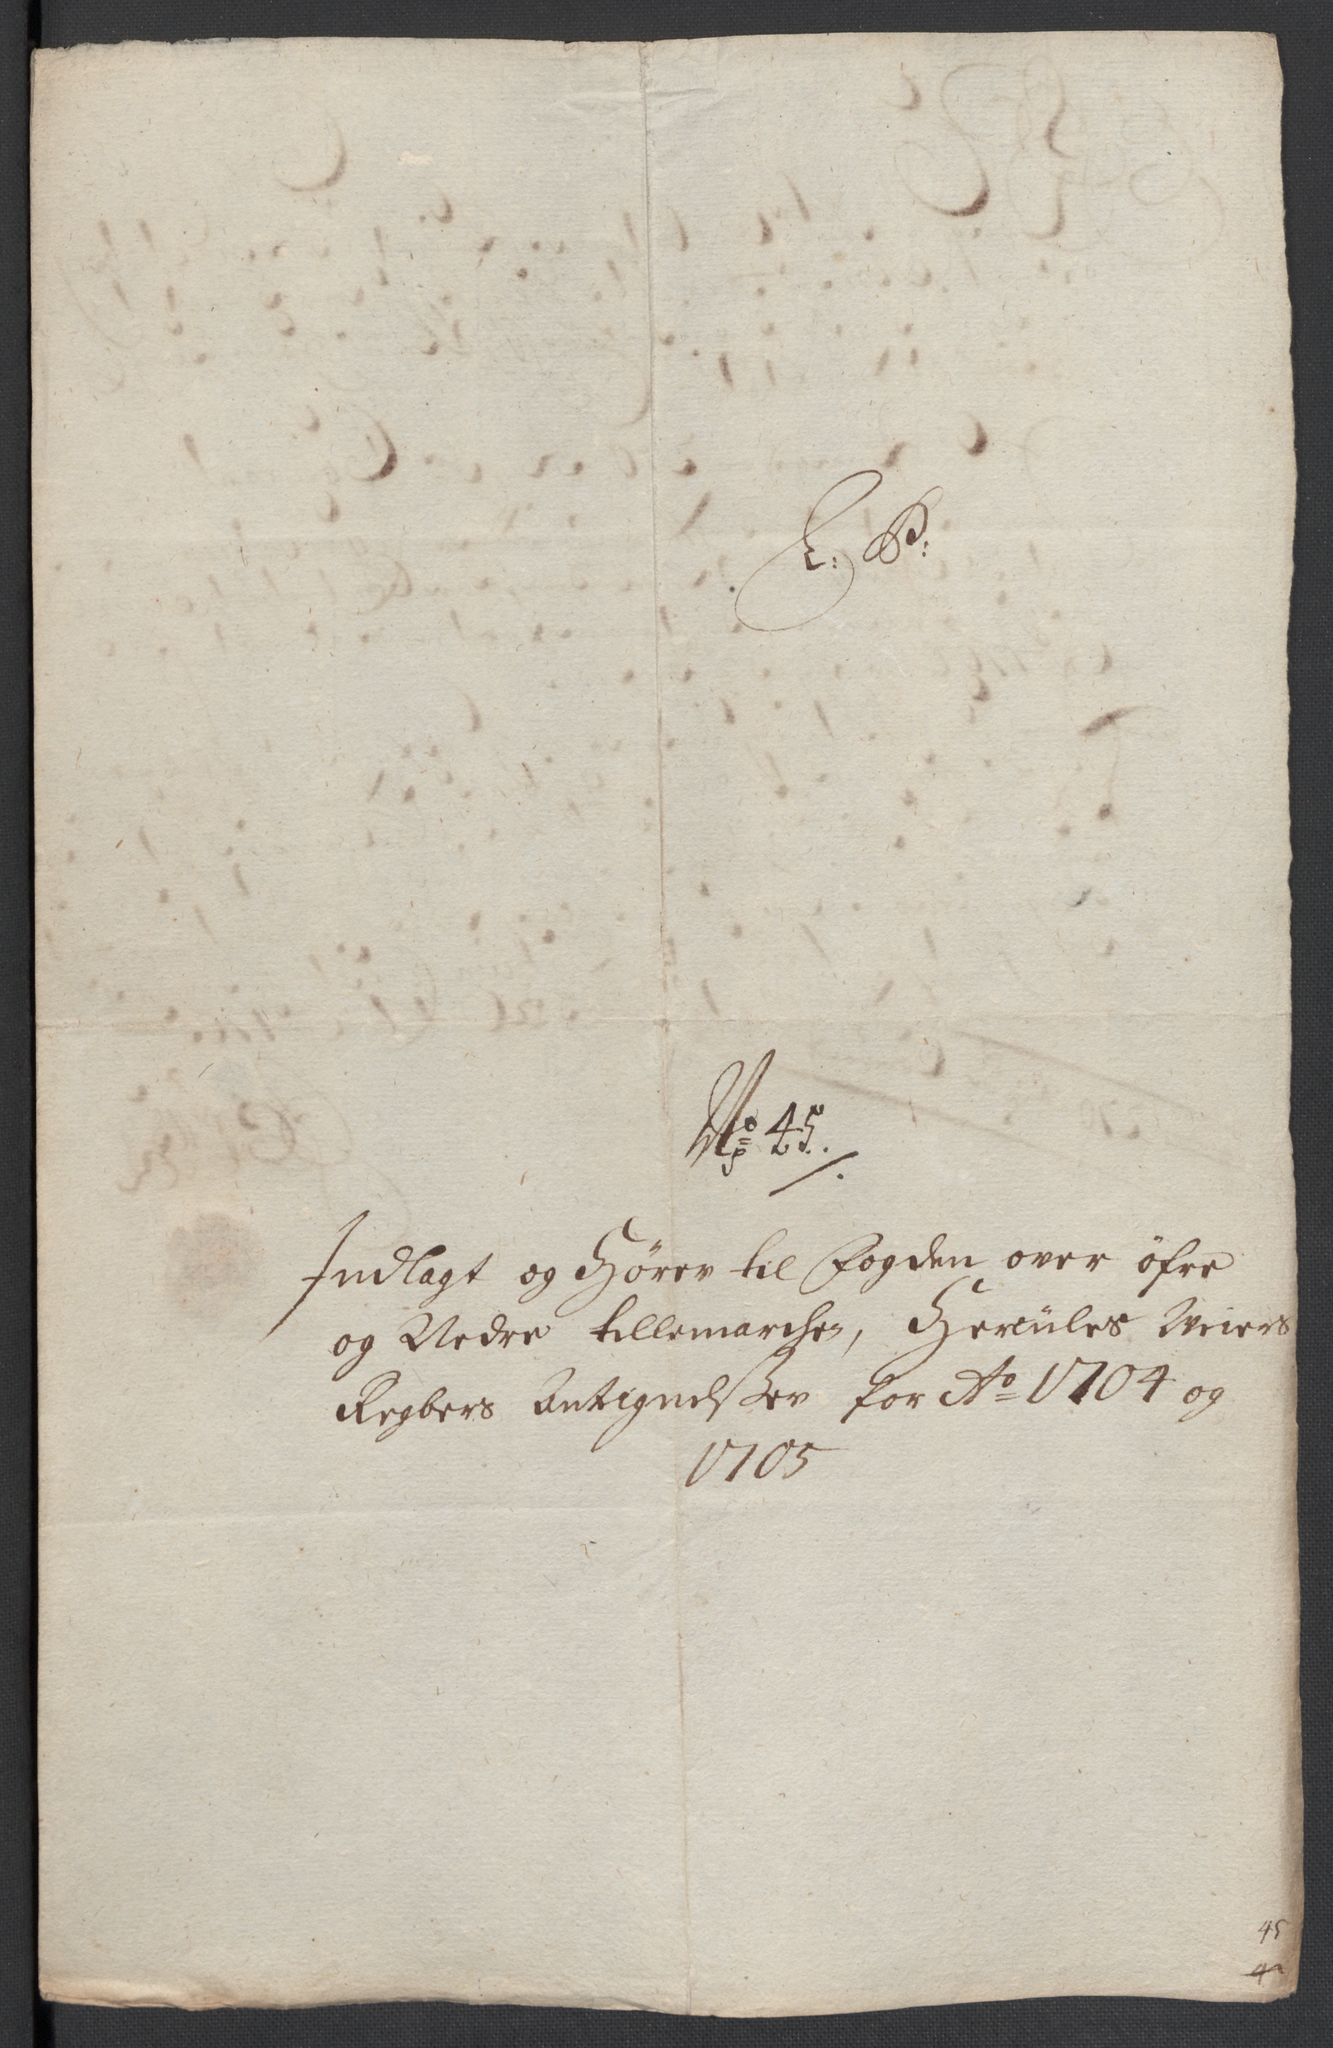 L: B:
No 45.
Indlagt og Hörer til Fogden over öfre
og Nedre tillemarchen, Hercules Weiers
Regbers Antignelsser for Ao 1704 og
1705
45